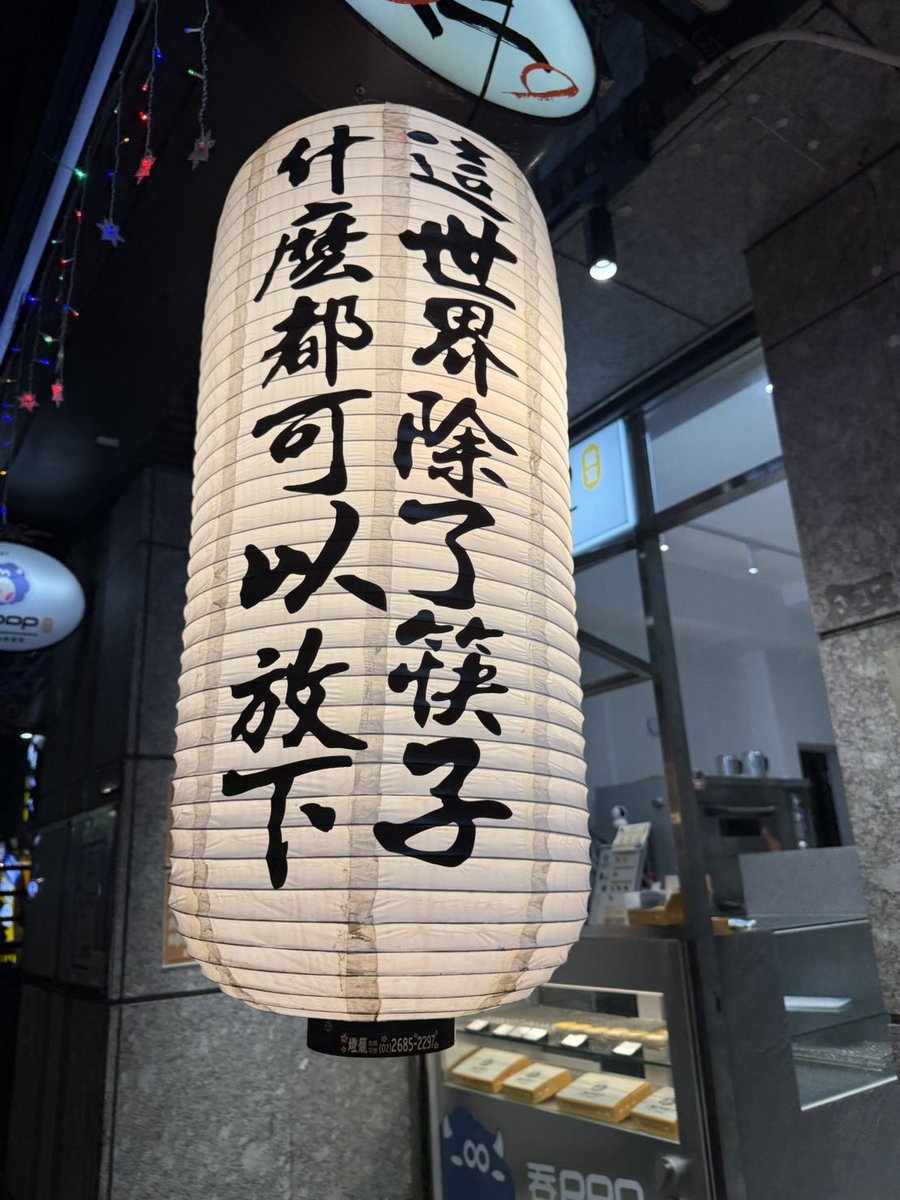 這世界除了筷子
什麼都可以放下
燈籠
(02)2685-2297
吞PPO